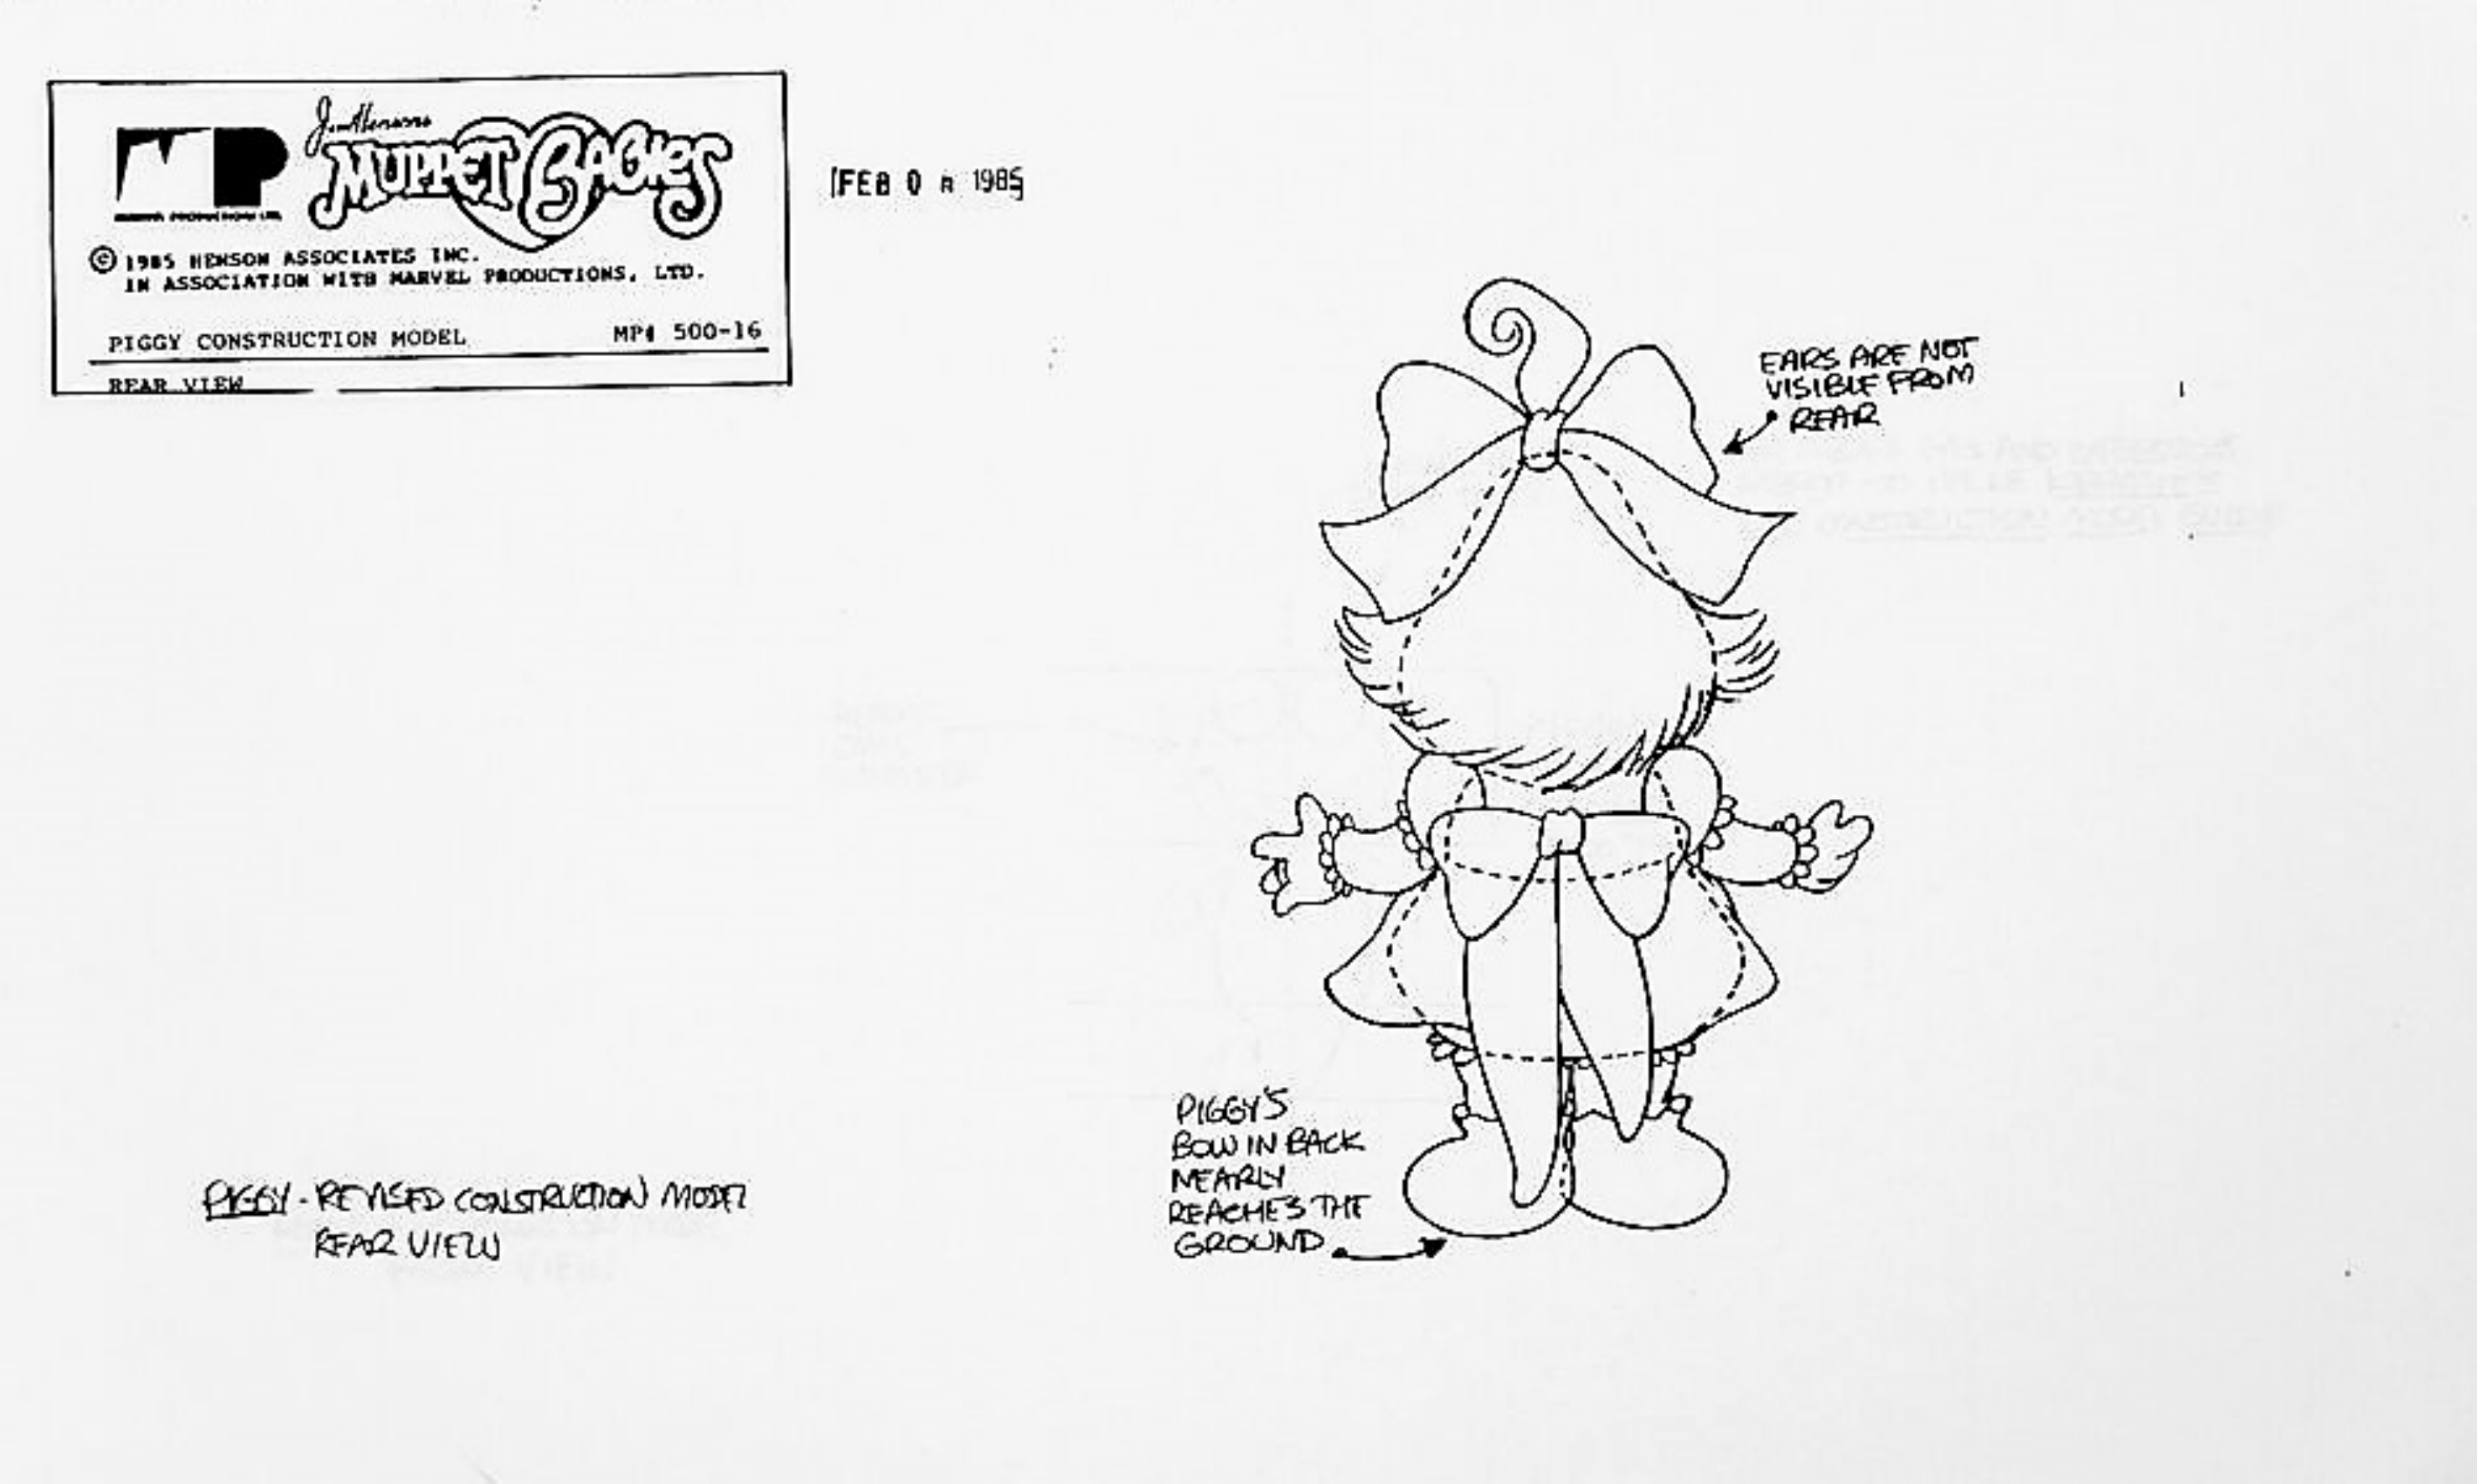 MP
Jim Henson's
MUPPET BABIES
MARVEL PRODUCTIONS LTD.
© 1985 HENSON ASSOCIATES INC.
IN ASSOCIATION WITH MARVEL PRODUCTIONS, LTD.
PIGGY CONSTRUCTION MODEL MP# 500-16
REAR VIEW
FEB 0 1985
EARS ARE NOT
VISIBLE FROM
REAR
PIGGY'S
BOW IN BACK
NEARLY
REACHES THE
GROUND
PIGGY - REVISED CONSTRUCTION MODEL
REAR VIEW